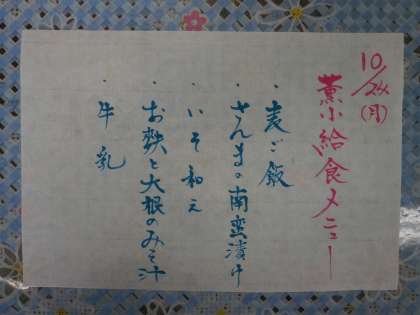 10/24(月)
薫小給食メニュー
・麦ご飯
・さんまの南蛮漬け
・いそ和え
・お麩と大根のみそ汁
・牛乳